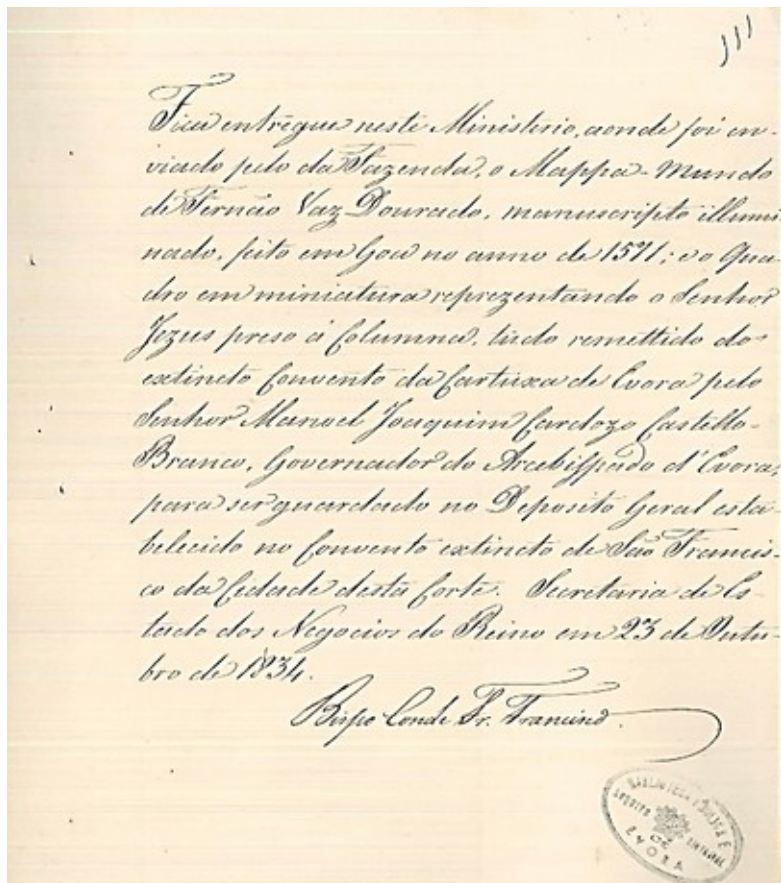 111
Fica entregue neste Ministerio, aonde foi en-
viado pelo da Fazenda, o Mappa-Mundo
de Fernão Vaz Dourado, manuscripto illumi-
nado, feito em Goa no anno de 1571; e o Qua-
dro em miniatura reprezentando o Senhor
Jezus preso á Columna, tudo remettido do
extincto Convento da Cartuxa de Evora pelo
Senhor Manoel Joaquim Cardozo Castello-
Branco, Governador do Arcebispado d'Evora,
para ser guardado no Deposito Geral esta-
belecido no Convento extincto de São Francis-
co da Cidade desta Corte. Secretaria de Es-
tado dos Negocios do Reino em 23 de Outu-
bro de 1834.
Bispo Conde Fr. Francisco.
BIBLIOTECA PUBLICA E
ARQUIVO DISTRITAL
DE
EVORA